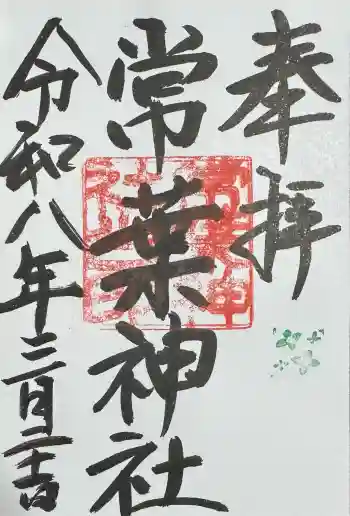 奉拝
常葉神社
令和八年三月二吉